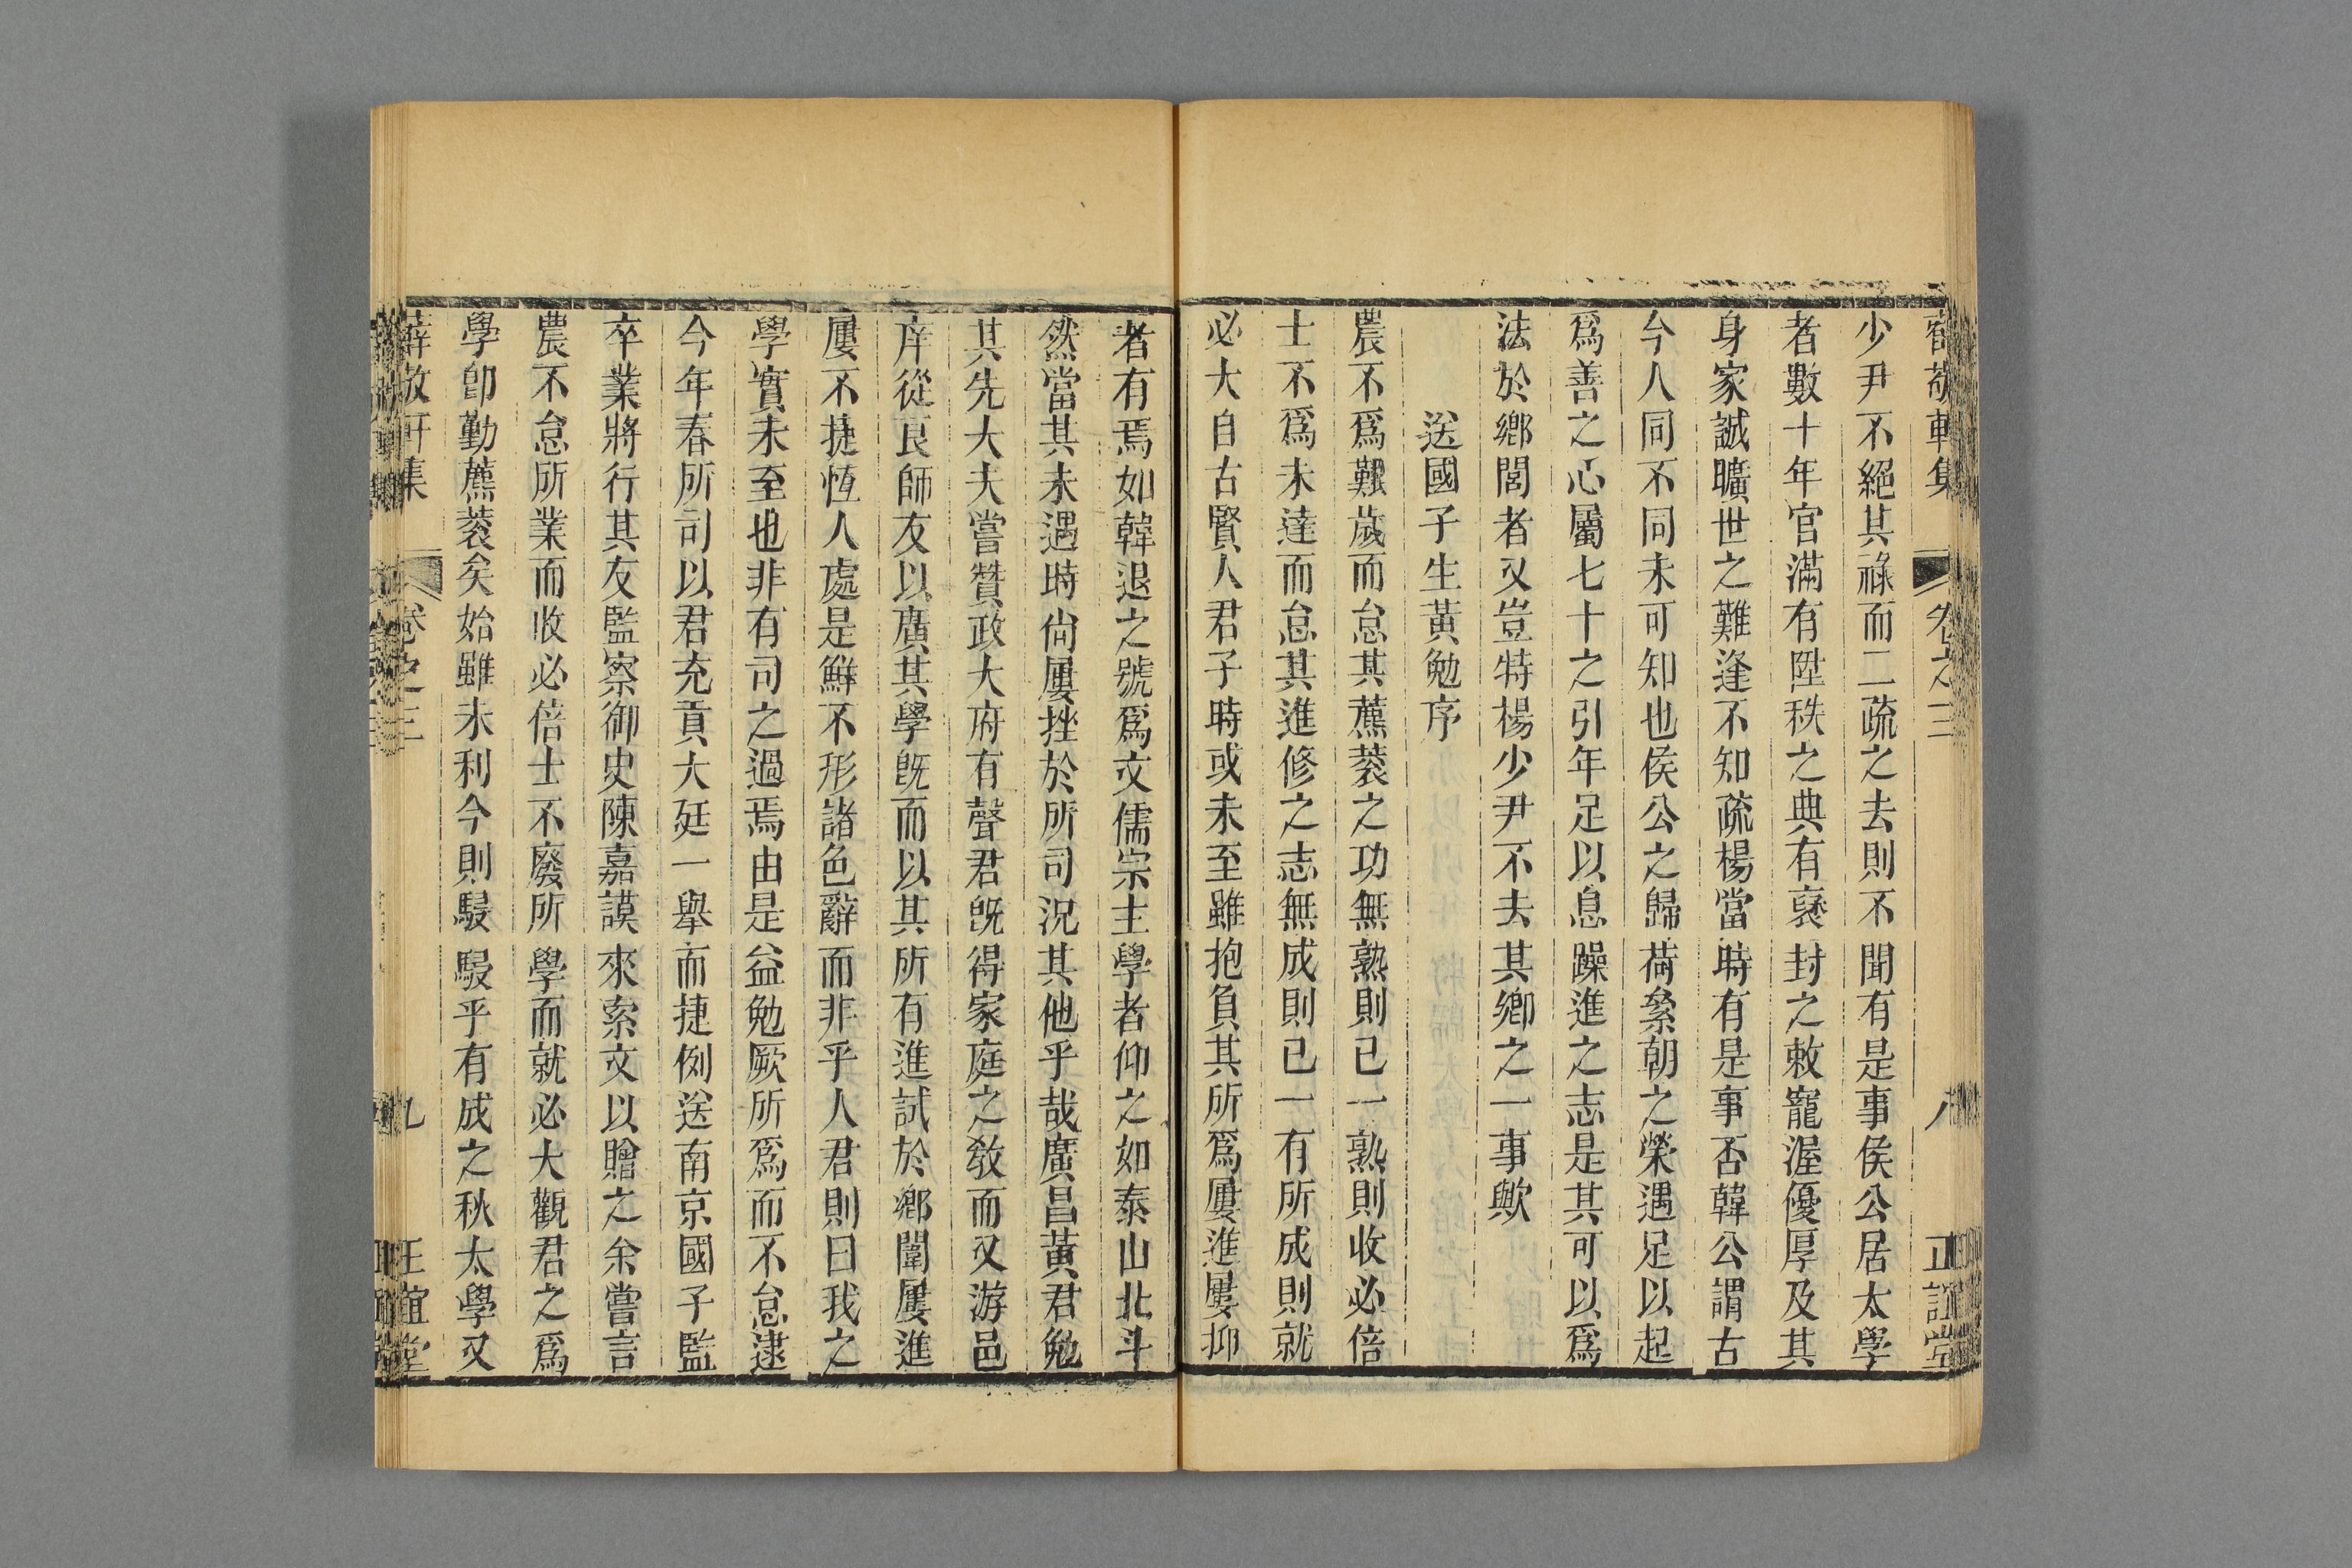 薛敬軒集 卷之三 八 正誼堂
少尹不絕其祿而二疏之去則不聞有是事侯公居太學
者數十年官滿有陞秩之典有襃封之敕寵渥優厚及其
身家誠曠世之難逢不知疏楊當時有是事否韓公謂古
今人同不同未可知也侯公之歸荷絫朝之榮遇足以起
爲善之心屬七十之引年足以息躁進之志是其可以爲
法於鄉閭者又豈特楊少尹不去其鄉之一事歟
送國子生黃勉序
農不爲艱歲而怠其藨蔉之功無熟則已一熟則收必倍
士不爲未達而怠其進修之志無成則已一有所成則就
必大自古賢人君子時或未至雖抱負其所爲屢進屢抑
者有焉如韓退之號爲文儒宗主學者仰之如泰山北斗
然當其未遇時尙屢挫於所司況其他乎哉廣昌黃君勉
其先大夫嘗贊政大府有聲君旣得家庭之敎而又游邑
庠從良師友以廣其學旣而以其所有進試於鄉闈屢進
屢不捷恆人處是鮮不形諸色辭而非乎人君則曰我之
學實未至也非有司之過焉由是益勉厥所爲而不怠逮
今年春所司以君充貢大廷一舉而捷例送南京國子監
卒業將行其友監察御史陳嘉謨來索文以贈之余嘗言
農不怠所業而收必倍士不廢所學而就必大觀君之爲
學卽勤藨蔉矣始雖未利今則駸駸乎有成之秋太學又
薛敬軒集 卷之三 九 正誼堂